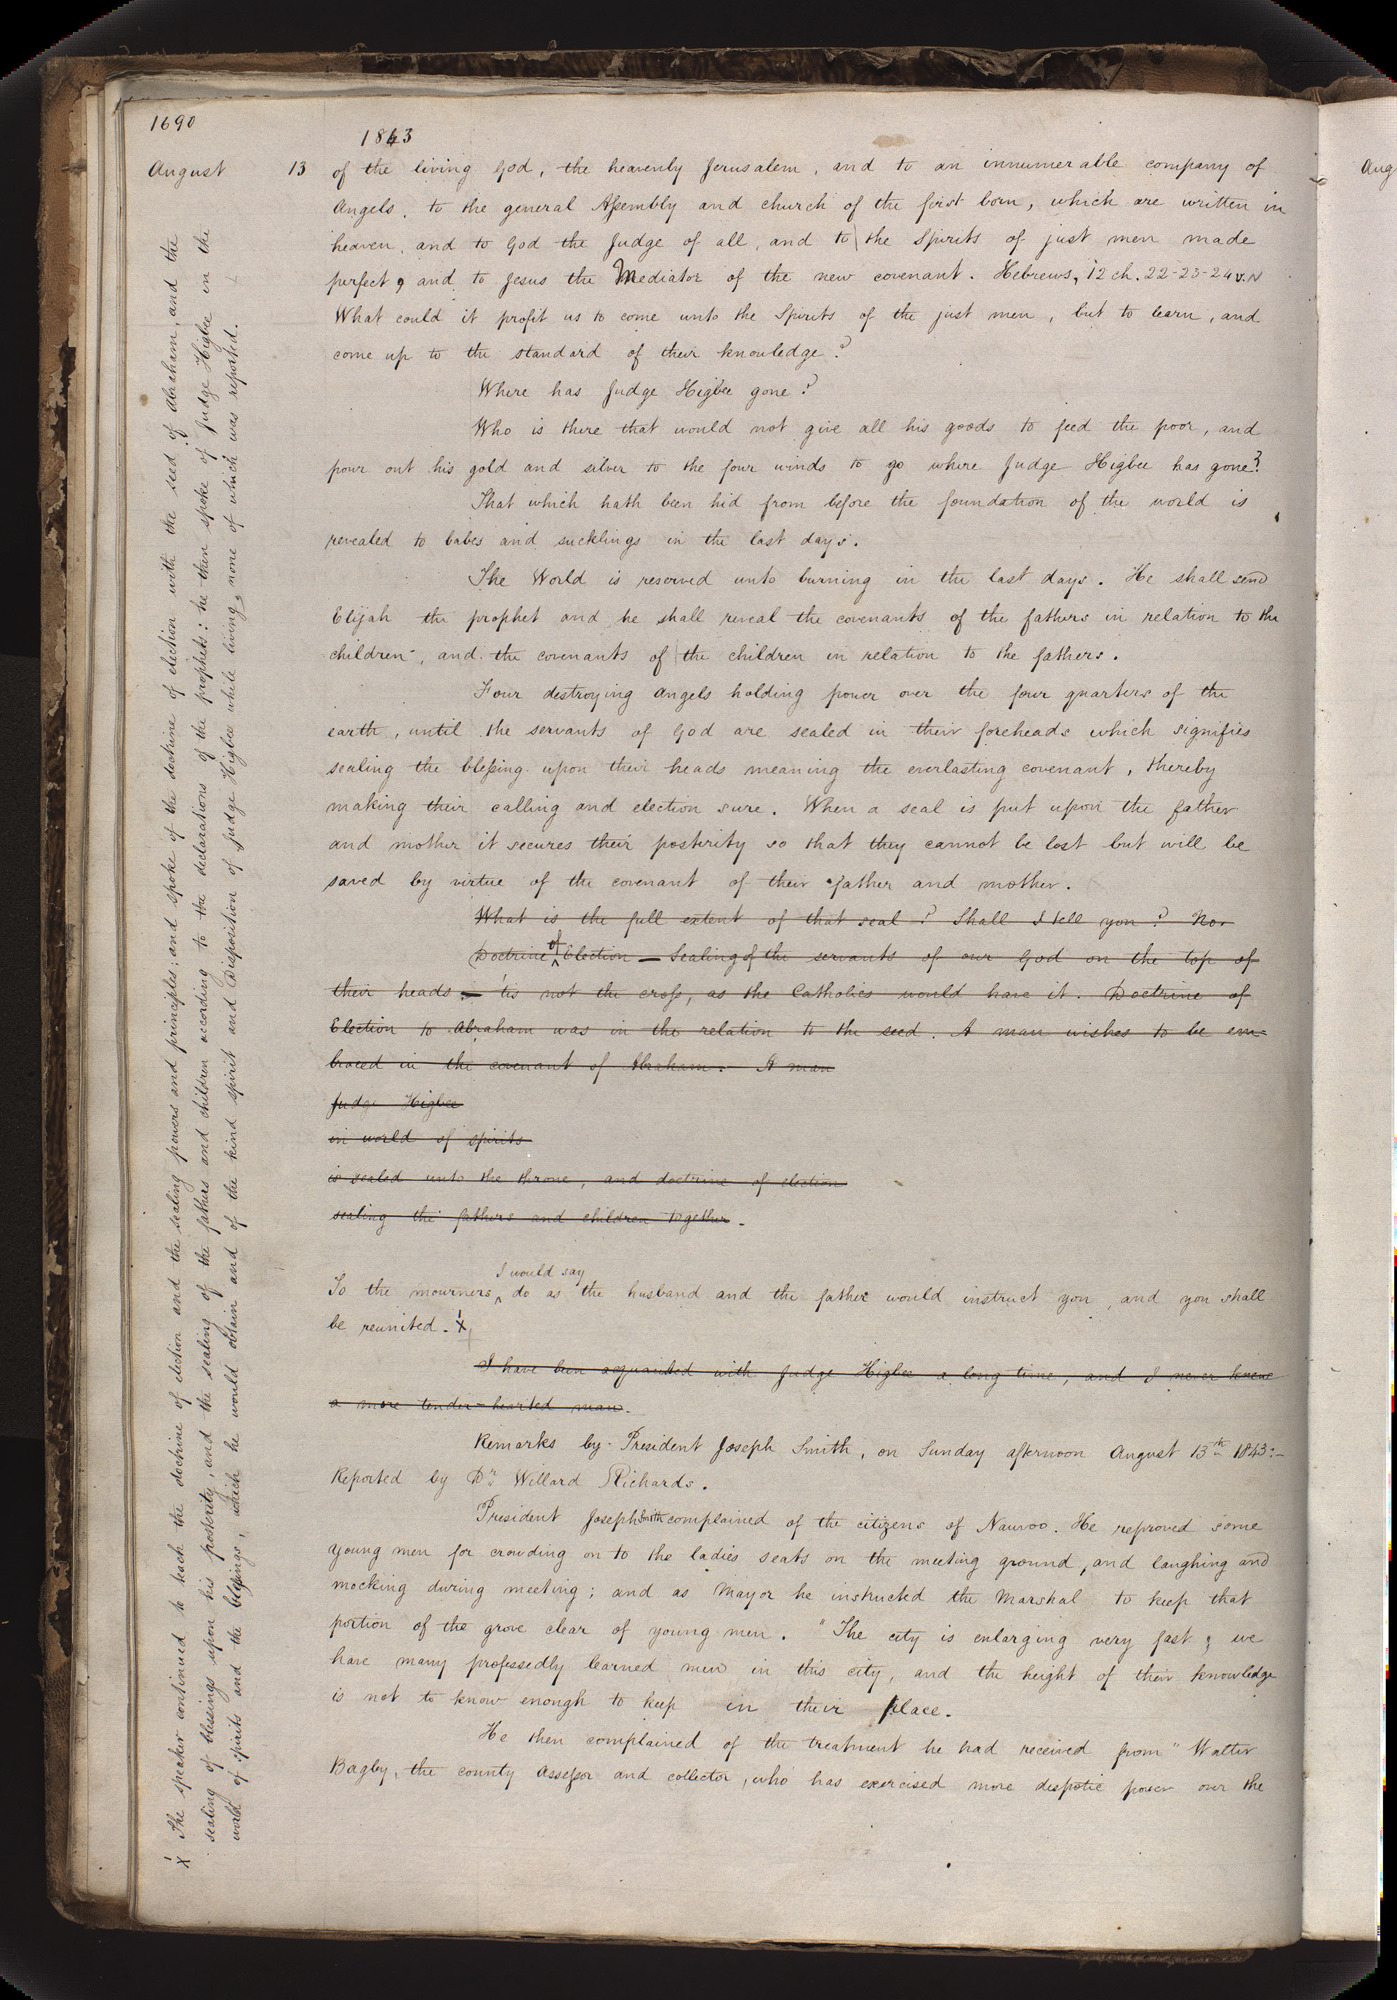 1690
1843
August 13 of the living God, the heavenly Jerusalem, and to an innumerable company of
Angels, to the general Assembly and church of the first born, which are written in
heaven, and to God the Judge of all, and to the Spirits of just men made
perfect, and to Jesus the Mediator of the new covenant. Hebrews, 12 ch. 22-23-24 v.
What could it profit us to come unto the Spirits of the just men, but to learn, and
come up to the standard of their knowledge?
Where has Judge Higbee gone?
Who is there that would not give all his goods to feed the poor, and
pour out his gold and silver to the four winds to go where Judge Higbee has gone?
That which hath been hid from before the foundation of the world is
revealed to babes and sucklings in the last days.
The World is reserved unto burning in the last days. He shall send
Elijah the prophet and he shall reveal the covenants of the fathers in relation to the
children, and the covenants of the children in relation to the fathers.
Four destroying angels holding power over the four quarters of the
earth, until the servants of God are sealed in their foreheads which signifies
sealing the blessing upon their heads meaning the everlasting covenant, thereby
making their calling and election sure. When a seal is put upon the father
and mother it secures their posterity so that they cannot be lost but will be
saved by virtue of the covenant of their father and mother.
What is the full extent of that seal? Shall I tell you? No.
Doctrine of Election — Sealing of the servants of our God on the top of
their heads — 'tis not the cross, as the Catholics would have it. Doctrine of
Election to Abraham was in the relation to the seed. A man wishes to be em-
braced in the covenant of Abraham. A man
Judge Higbee
in world of spirits
is sealed unto the throne, and doctrine of election
sealing the fathers and children together.
To the mourners I would say do as the husband and the father would instruct you, and you shall
be reunited. X
I have been acquainted with Judge Higbee a long time, and I never knew
a more tender-hearted man.
Remarks by President Joseph Smith, on Sunday afternoon August 13th 1843:-
Reported by Dr. Willard Richards.
President Joseph Smith complained of the citizens of Nauvoo. He reproved some
young men for crowding on to the ladies seats on the meeting ground, and laughing and
mocking during meeting; and as Mayor he instructed the Marshal to keep that
portion of the grove clear of young men. "The city is enlarging very fast; we
have many professedly learned men in this city, and the height of their knowledge
is not to know enough to keep in their place.
He then complained of the treatment he had received from "Walter
Bagby, the county Assessor and collector, who has exercised more despotic power over the
X The speaker continued to teach the doctrine of election and the sealing powers and principles; and spoke of the doctrine of election with the seed of Abraham, and the
sealing of blessings upon his posterity, and the sealing of the fathers and children according to the declarations of the prophets: he then spoke of Judge Higbee in the
world of spirits and the blessings, which he would obtain and of the kind spirit and Disposition of Judge Higbee while living, none of which was reported.
Aug